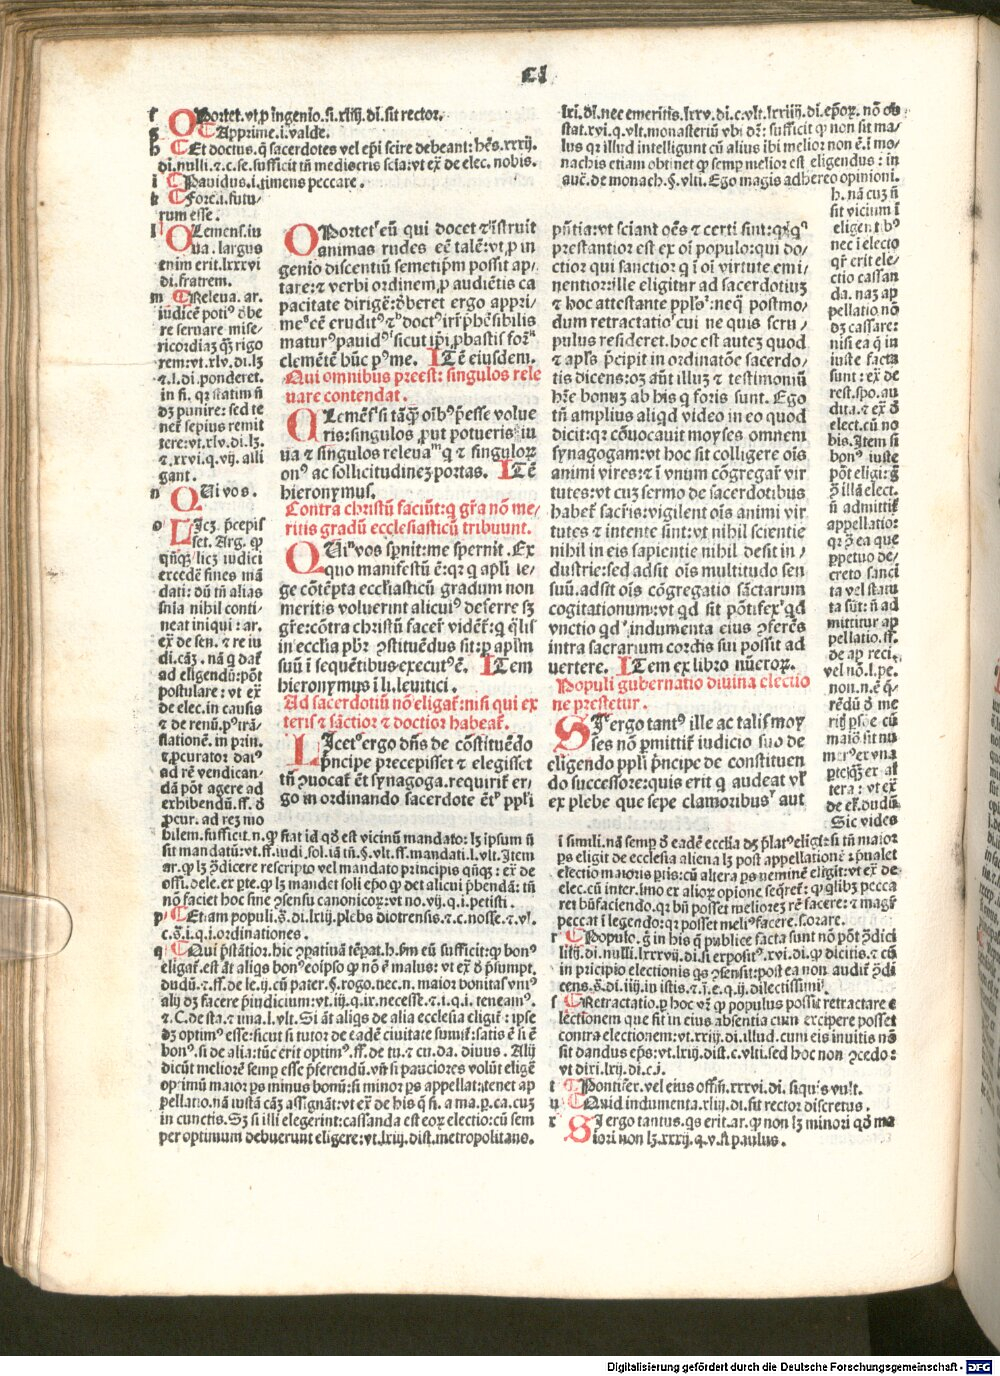 CI
Oportet.vt ꝓ ingenio.si.xliij.di.sit rector.
Apprime.i.valde.
Et doctus.q̄ sacerdotes vel ep̄i scire debeant: hēs.xxxij.
di.nulli.⁊.c.se.sufficit tn̄ mediocris scīa: vt ex̄ de elec. nobis.
Pauidus.i.timens peccare.
Fore.i.futu/
rum esse.
Clemens.in
ua. largus
enim erit.lxxxvi
di.fratrem.
Releua. ar.
iudicē poti⁹ debe
re seruare mise/
ricordiaʒ qʒ rigo
rem: vt.xlv.di.lʒ
⁊.l.di.ponderet.
in fi. qr statim n̄
dʒ punire: sed te
net̄ sepius remit
tere: vt.xlv.di.lʒ.
⁊.xxvi.q.vij. alli
gant.
Qui vos.
Licʒ. p̄cepis
set. Arg. ꝙ
qn̄qʒ licʒ iudici
excedē fines mā
dati: dū tn̄ alias
sn̄ia nihil conti/
neat iniqui: ar.
ex̄ de sen. ⁊ re iu
di.cāʒ. nā q dat̄
ad eligendū: pōt
postulare: vt ex̄
de elec. in causis
⁊ de renū.p⁹ trā/
slationē. in prin.
⁊ ꝓcurator dat⁹
ad rē vendican/
dā pōt agere ad
exhibendū. ff. d̄
ꝓcur. ad reʒ mo
bilem.sufficit.n.ꝙ stat id qd̄ est vicinū mandato: lʒ ipsum n̄
sit mandatū: vt.ff.iudi.sol.iā tn̄.§.vlt.ff.mandati.l.vlt.Item
ar.ꝙ lʒ ꝯdicere rescripto vel mandato principis qn̄qʒ: ex̄ de
offi.dele.ex pte.ꝙ lʒ mandet soli ep̄o ꝙ det alicui p̄bendā: tn̄
nō faciet hoc sine ꝯsensu canonicoꝝ: vt no.vij.q.i.petisti.
Etiam populi.§.di.lxiij.plebs diotrensis.⁊.c.nosse.⁊.vj.
c.§.i.q.i.ordinationes.
Qui p̄stātior.hic ꝯpatiuā tēpat.h.sm̄ eū sufficit: ꝙ bon⁹
eligat̄.est āt aliqs bon⁹ eoipso ꝙ nō ē malus: vt ex̄ d̄ p̄sumpt.
dudū.⁊.ff.de le.ij.cū pater.§.rogo.nec.n.maior bonitas vni⁹
alij dʒ facere p̄iudicium: vt.iij.q.ix.necesse.⁊.i.q.i. teneam⁹.
⁊.C.de sta.⁊ ima.l.vlt. Si āt aliqs de alia ecclesia eligit̄: ipse
dʒ optim⁹ esse: sicut si tutor de eadē ciuitate sumit̄: satis ē si ē
bon⁹.si de alia: tūc erit optim⁹.ff.de tu.⁊ cu.da.diuus. Alij
dicūt meliorē semp esse p̄ferendū.vn̄ si pauciores volūt eligē
optimū maior ps minus bonū: si minor ps appellat: tenet ap
pellatio.nā iustā cāʒ assignāt: vt ex̄ de his q̄ fi. a ma.p.ca.cuʒ
in cunctis. Sʒ si illi elegerint: cassanda est eoꝝ electio: cū sem
per optimum debuerunt eligere: vt.lxiij.dist.metropolitans.
Oportet eū qui docet ⁊ īstruit
animas rudes eē talē: vt ꝓ in
genio discentiū semetip̄m possit ap/
tare: ⁊ verbi ordinem ꝓ audiētis ca
pacitate dirigē: debet ergo appri/
me ⁊cē erudit⁹ ⁊ doct⁹ irrep̄hēsibilis
matur⁹ pauid⁹ sicut ip̄i ꝓbastis for̄
clemētē hūc p⁹ me. Itē eiusdem.
Qui omnibus preest: singulos rele
uare contendat.
Clemēs si tāqʒ oīb⁹ p̄esse volue
ris: singulos ꝓut potueris iu
ua ⁊ singulos releua q̄ ⁊ singuloꝝ
on⁹ ac sollicitudineʒ portas. Itē
hieronymus.
Contra christū faciūt: q̄ grā nō me/
ritis gradū ecclesiasticū tribuunt.
Qui vos spnit: me spernit. Ex
quo manifestū ē: qr q̄ apl̄i le/
ge cōtēpta eccl̄iasticū gradum non
meritis voluerint alicui⁹ deferre sʒ
gr̄e: cōtra christū facer̄ vidēt̄: q̄ q̄lis
in ecclīa pb̄r ꝯstituēdus sit: ꝑ apl̄m
suū ī sequētibus executus ē. Item
hieronymus ī li. leuitici.
Ad sacerdotiū nō eligat̄: nisi qui ex
teris ⁊ sāctior ⁊ doctior habeat̄.
Licet ergo dn̄s de cōstituēdo
p̄ncipe precepisset ⁊ elegisset
tn̄ ꝯuocat̄ ēt synagoga. requirit̄ er/
go in ordinando sacerdote ēt ppl̄i
p̄ntia: vt sciant oēs ⁊ certi sint: qr q̄
prestantior est ex oī populo: qui do/
ctior qui sanctior q̄ ī oī virtute emi/
nentior: ille eligitur ad sacerdotiuʒ
⁊ hoc attestante pplo: neqʒ postmo/
dum retractatio cui ne quis scru/
pulus resideret. hoc est auteʒ quod
⁊ apl̄s p̄cipit in ordinatōe sacerdo/
tis dicens: oʒ aūt illuʒ ⁊ testimoniū
hr̄e bonuʒ ab his q̄ foris sunt. Ego
tn̄ amplius aliqd video in eo quod
dicit: qr cōuocauit moyses omnem
synagogam: vt hoc sit colligere oīs
animi vires: ⁊ ī vnum cōgregar̄ vir
tutes: vt cuʒ sermo de sacerdotibus
habet̄ sacrīs: vigilent oīs animi vir
tutes ⁊ intente sint: vt nihil scientie
nihil in eis sapientie nihil desit in/
dustrie: sed adsit oīs multitudo sen
suū. adsit oīs cōgregatio sāctarum
cogitationum: vt qd sit pōtifex qd
vnctio qd indumenta eius ꝯferēs
intra sacrarium cordis sui possit ad
uertere. Item ex libro nūeroꝝ.
Populi gubernatio diuina electio
ne prestetur.
Si ergo tant⁹ ille ac talis moy
ses nō ꝑmittit iudicio suo de
eligendo ppl̄i p̄ncipe de constituen
do successore: quis erit q̄ audeat vl̄
ex plebe que sepe clamoribus aut
lxi.di.nec emeritis.lxxv.di.c.vlt.lxxiiij.di.ep̄oꝝ. nō ob
stat.xvi.q.vlt.monasteriū vbi dr̄: sufficit ꝙ non sit ma/
lus qr illud intelligunt cū alius ibi melior non ē.i mo/
nachis etiam obtinet ꝙ semp melior est eligendus: in
auc̄.de monach.§.vlti. Ego magis adhereo opinioni.
h. nā cuʒ n̄
sit vicium ī
eligentib⁹
nec ī electo
qr̄ erit ele/
ctio cassan
da. naʒ ap
pellatio nō
dʒ cassare:
nisi ea q̄ in
iuste facta
sunt: ex̄ de
rest.spo.au
dita.⁊ ex̄ d̄
elect.cū no
bis. Item si
bon⁹ iuste
pōt eligi: ḡ
ꝓ illā elect.
n̄ admittit̄
appellatio:
qr ꝓ ea que
ꝑpetuo de/
creto sanci
ta vel statu
ta sūt: n̄ ad
mittitur ap
pellatio. ff.
de ap reci.
vel nō.l.pe.
non.n.ē q̄/
rēdū d̄ me
rit̄ ipse cū
maiō sit nu
merus vna
ptē qʒ ex al
tera: vt ex̄
de el̄. dudū
Sic vides
ī simili.nā semp d̄ eadē ecclīa dʒ p̄lat⁹ eligi: si tn̄ maior
ps eligit de ecclesia aliena lʒ post appellationē: p̄ualet
electio maioris ptis: cū altera ps neminē eligit: vt ex̄ de
elec.cū inter.imo ex alioꝝ opione seqret̄: ꝙ qlibʒ pecca
ret būfaciendo.qr bn̄ posset melioreʒ rē facere: ⁊ magr̄
peccat ī legendo: qr posset meli⁹ facere.s.orare.
Populo.ḡ in his q̄ publice facta sunt nō pōt ꝯdici
liiij.di.nulli.lxxxvij.di.si expositꝰ.xvi.di.ꝙ dicitis.⁊ cū
in pricipio electionis qs ꝯsensit: post ea non audit̄ ꝯdi
cens.§.di.iiij.in istis.⁊.ī.e.q.ij.dilectissimi.
Retractatio.ꝑ hoc vr̄ ꝙ populus possit retractare e
lectionem que fit in eius absentia cum excipere posset
contra electionem: vt.xxiij.di.illud.cum eis inuitis nō
sit dandus ep̄s: vt.lxiij.dist.c.vlti.sed hoc non ꝯcedo:
vt dixi.lxij.di.c.i.
Pontifex.vel eius offm̄.xxxvi.di. si quis vult.
Quid indumenta.xliij.di.sit rector discretus.
Si ergo tantus.qs erit.ar.ꝙ non lʒ minori qd̄ ma
iori non lʒ.xxxij.q.v.si paulus.
Digitalisierung gefördert durch die Deutsche Forschungsgemeinschaft - DFG